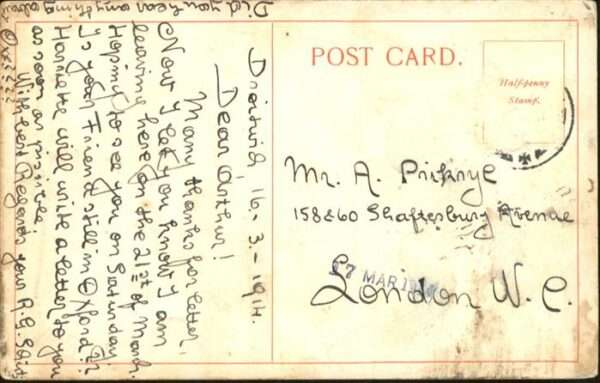 Droitwid 16-3-1914.
Dear Arthur!
Many thanks for letter,
Now I let you know I am
leaving here on the 21st of March.
Hoping to see you on Saturday
Is your Friend still in Oxford??
Harriette will write a letter to you
as soon as possible.
With best Regards your R.G.
Did you hear anything about
POST CARD.
Half-penny
Stamp.
Mr. A. Priknye
158 & 60 Shaftesbury Avenue
London W.C.
17 MAR